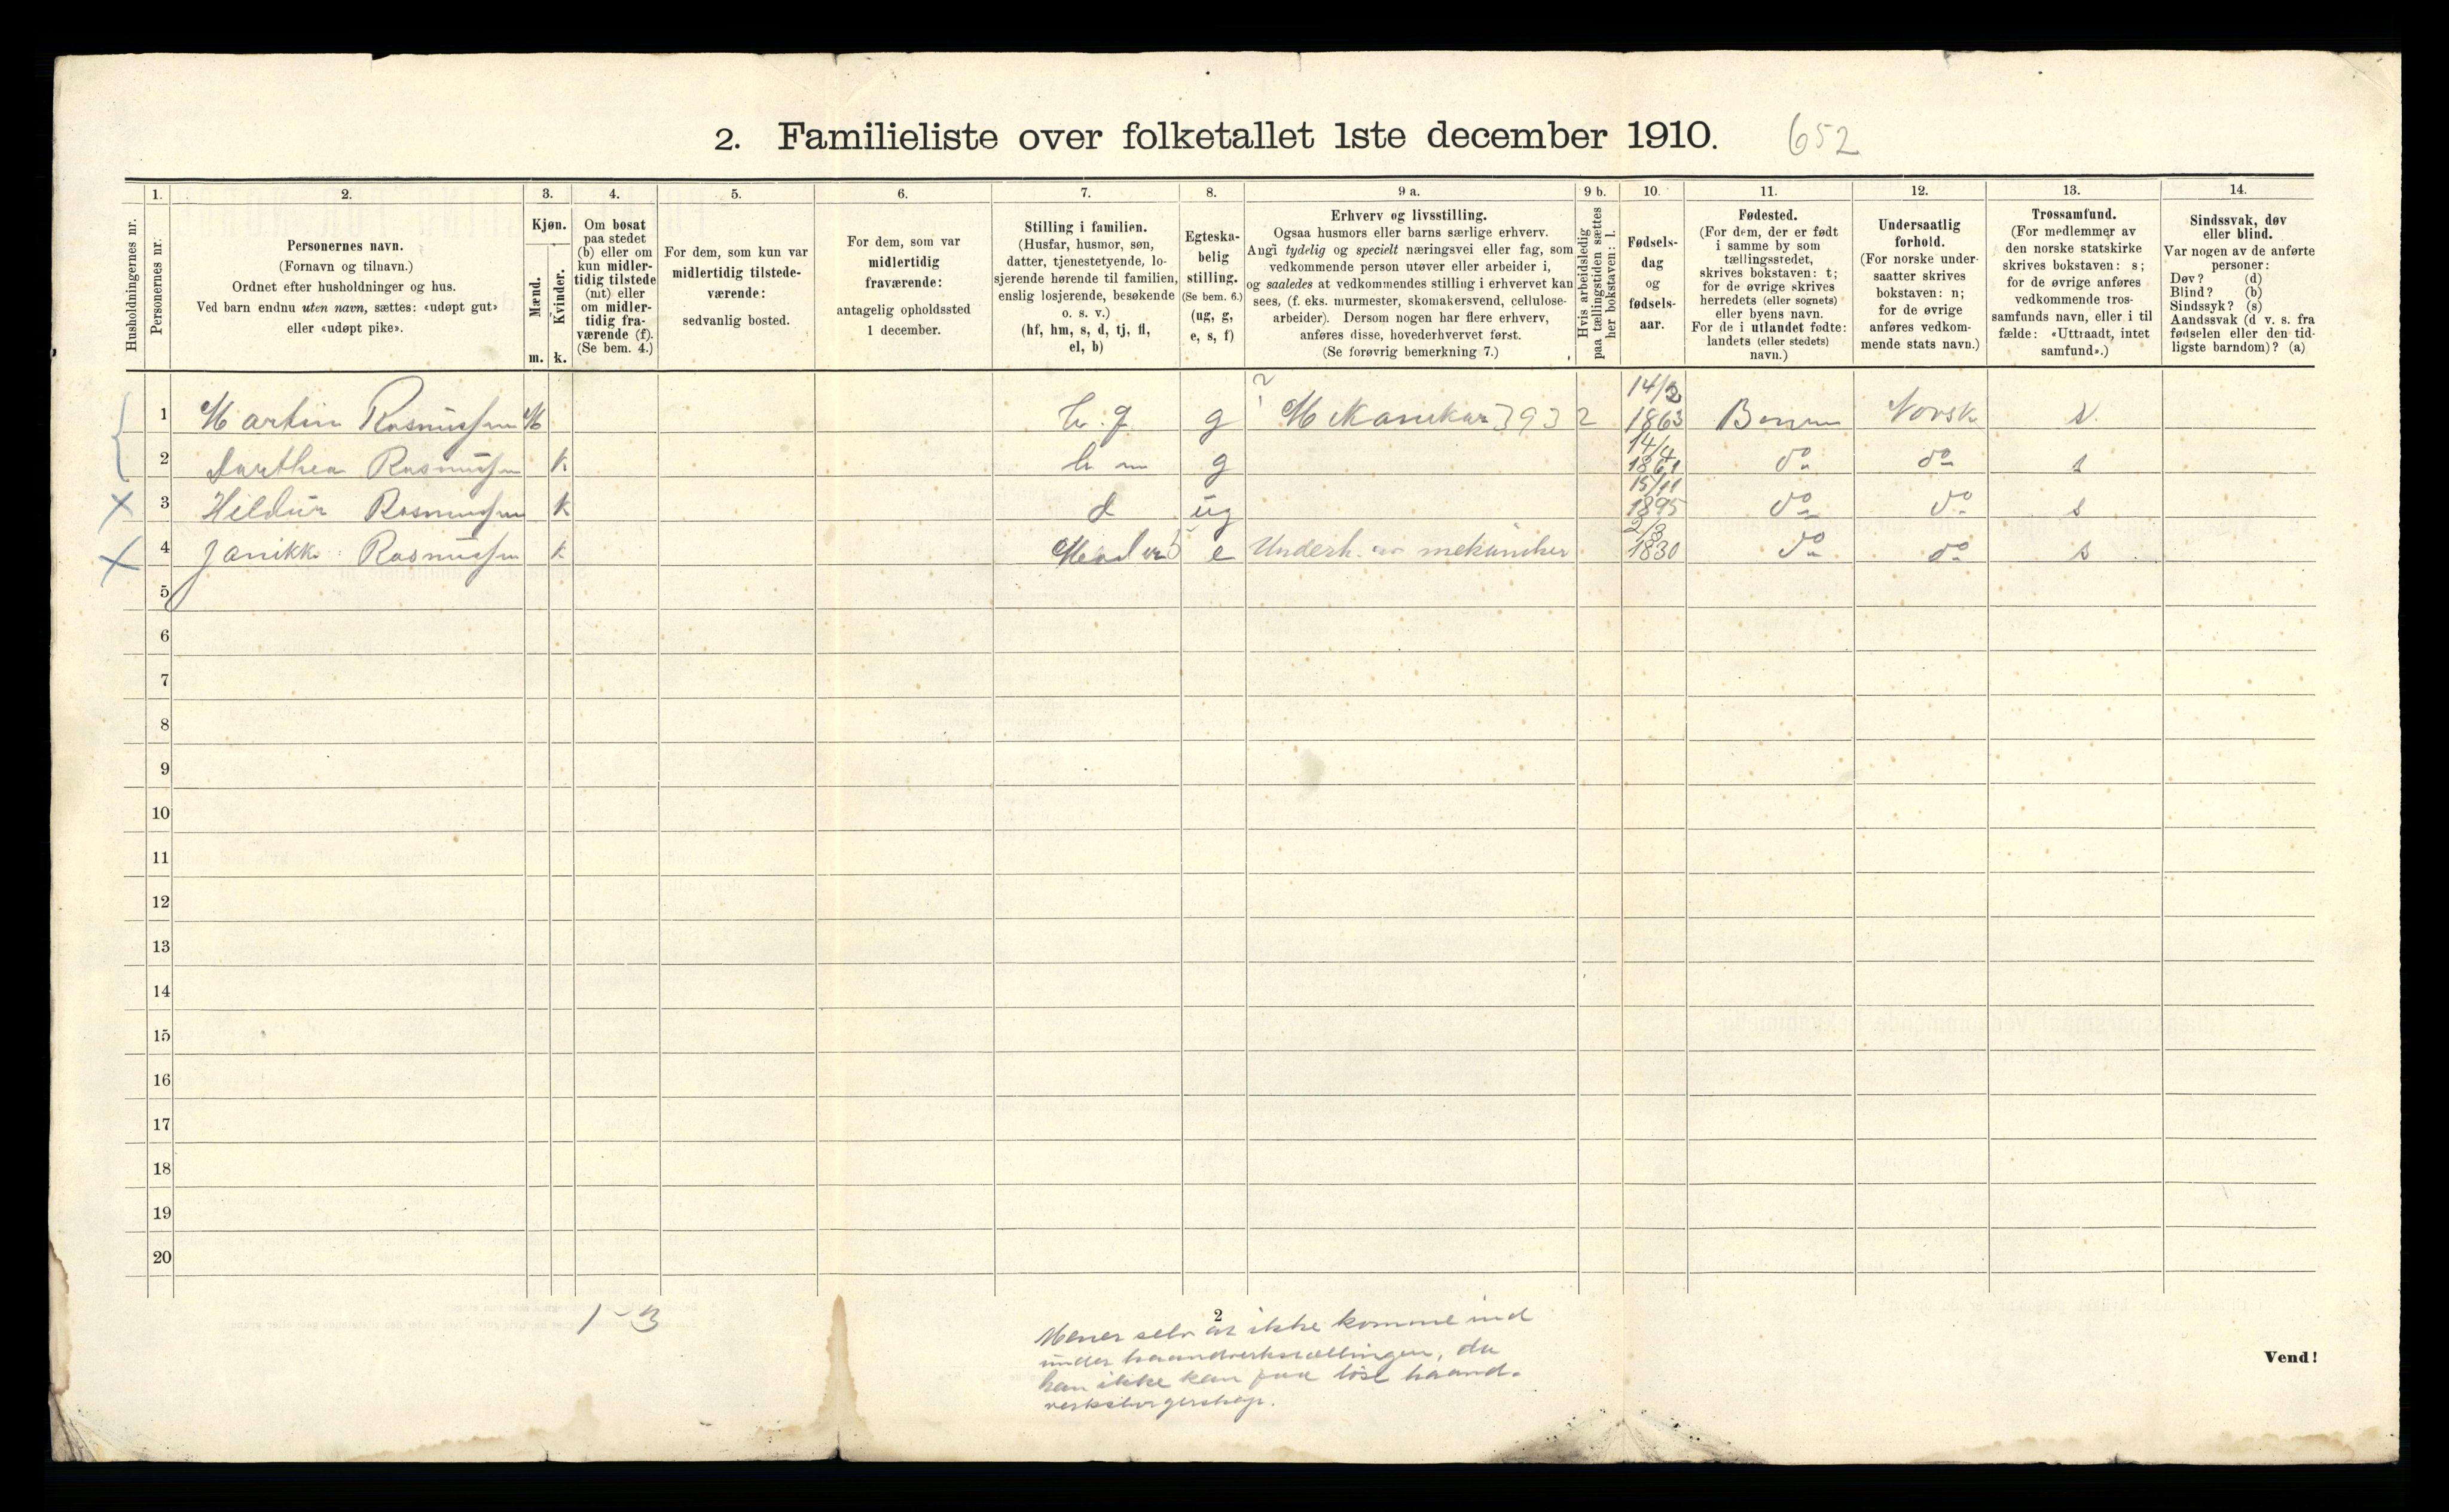 2. Familieliste over folketallet 1ste december 1910. 652
Husholdningernes nr.
1.
Personernes nr.
2.
Personernes navn.
(Fornavn og tilnavn.)
Ordnet efter husholdninger og hus.
Ved barn endnu uten navn, sættes: «udøpt gut»
eller «udøpt pike».
3.
Kjøn.
Mænd.
Kvinder.
m. k.
4.
Om bosat
paa stedet
(b) eller om
kun midler-
tidig tilstede
(mt) eller
om midler-
tidig fra-
værende (f).
(Se bem. 4.)
5.
For dem, som kun var
midlertidig tilstede-
værende:
sedvanlig bosted.
6.
For dem, som var
midlertidig
fraværende:
antagelig opholdssted
1 december.
7.
Stilling i familien.
(Husfar, husmor, søn,
datter, tjenestetyende, lo-
sjerende hørende til familien,
enslig losjerende, besøkende
o. s. v.)
(hf, hm, s, d, tj, fl,
el, b)
8.
Egteska-
belig
stilling.
(Se bem. 6.)
(ug, g,
e, s, f)
9 a.
Erhverv og livsstilling.
Ogsaa husmors eller barns særlige erhverv.
Angi tydelig og specielt næringsvei eller fag, som
vedkommende person utøver eller arbeider i,
og saaledes at vedkommendes stilling i erhvervet kan
sees, (f. eks. murmester, skomakersvend, cellulose-
arbeider). Dersom nogen har flere erhverv,
anføres disse, hovederhvervet først.
(Se forøvrig bemerkning 7.)
9 b.
Hvis arbeidsledig
paa tællingstiden sættes
her bokstaven: l.
10.
Fødsels-
dag
og
fødsels-
aar.
11.
Fødested.
(For dem, der er født
i samme by som
tællingsstedet,
skrives bokstaven: t;
for de øvrige skrives
herredets (eller sognets)
eller byens navn.
For de i utlandet fødte:
landets (eller stedets)
navn.)
12.
Undersaatlig
forhold.
(For norske under-
saatter skrives
bokstaven: n;
for de øvrige
anføres vedkom-
mende stats navn.)
13.
Trossamfund.
(For medlemmer av
den norske statskirke
skrives bokstaven: s;
for de øvrige anføres
vedkommende tros-
samfunds navn, eller i til
fælde: «Uttraadt, intet
samfund».)
14.
Sindssvak, døv
eller blind.
Var nogen av de anførte
personer:
Døv? (d)
Blind? (b)
Sindssyk? (s)
Aandssvak (d v. s. fra
fødselen eller den tid-
ligste barndom)? (a)
1 Martin Rasmussen M g Mekaniker 3932 1863 Norsk s.
2 Dorthea Rasmussen k hm g 14/4 1861 do do s
3 Hildur Rasmussen k d ug 15/11 1895 do do s
4 Janikke Rasmussen k e Underh. av mekaniker 1830 do do s
5
6
7
8
9
10
11
12
13
14
15
16
17
18
19
20
1-3
2
Mener selv at ikke komme ind
under haandverkstællingen, da
han ikke kan faa löst haand-
verksborgerskap.
Vend!